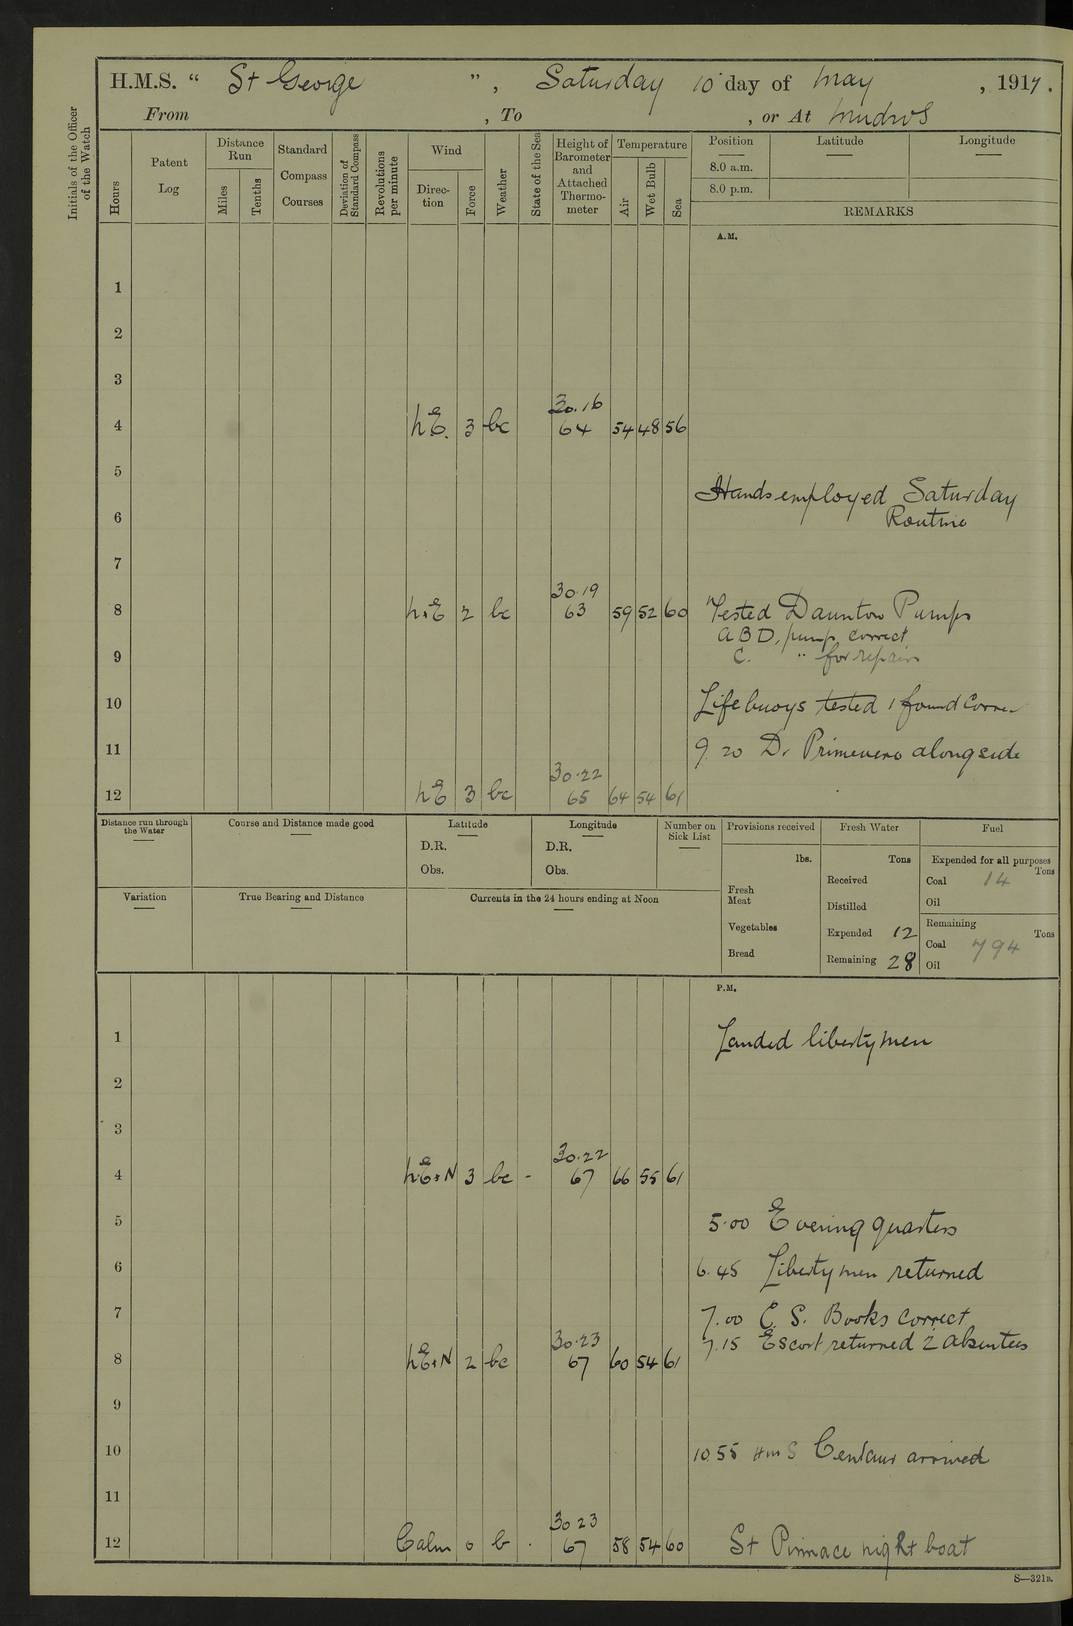 H.M.S. “ St George ” , Saturday 10 day of May , 1917.
From , To , or At Mudros
Initials of the Officer of the Watch
Hours
Patent Log
Distance Run
Miles
Tenths
Standard Compass Courses
Deviation of Standard Compass
Revolutions per minute
Wind
Direction
Force
Weather
State of the Sea
Height of Barometer and Attached Thermometer
Temperature
Air
Wet Bulb
Sea
Position Latitude Longitude
8.0 a.m.
8.0 p.m.
REMARKS
A.M.
1
2
3
30.16
4 NE. 3 bc 64 54 48 56
5
Hands employed Saturday
6 Routine
7
30.19
8 N.E 2 bc 63 59 52 60 Tested Daunton Pumps
A B D, pump correct
9 C. " for repairs
10 Lifebuoys tested & found Corre
11 9.20 Dr Primevere alongside
30.22
12 NE 3 bc 65 64 54 61
Distance run through the Water
Course and Distance made good
Latitude
D.R.
Obs.
Longitude
D.R.
Obs.
Number on Sick List
Provisions received
lbs.
Fresh Meat
Vegetables
Bread
Fresh Water
Tons
Received
Distilled
Expended 12
Remaining 28
Fuel
Expended for all purposes
Tons
Coal 14
Oil
Remaining
Tons
Coal 794
Oil
Variation
True Bearing and Distance
Currents in the 24 hours ending at Noon
P.M.
1 Landed liberty men
2
3
30.22
4 NE+N 3 bc - 67 66 55 61
5 5.00 Evening quarters
6 6.45 Liberty men returned
7 7.00 C. S. Books Correct
30.23 7.15 Escort returned 2 absentees
8 NE+N 2 bc 67 60 54 61
9
10 10.55 HMS Centaur arrived
11
30 23
12 Calm 0 b . 67 58 54 60 St Pinnace night boat
S—321B.